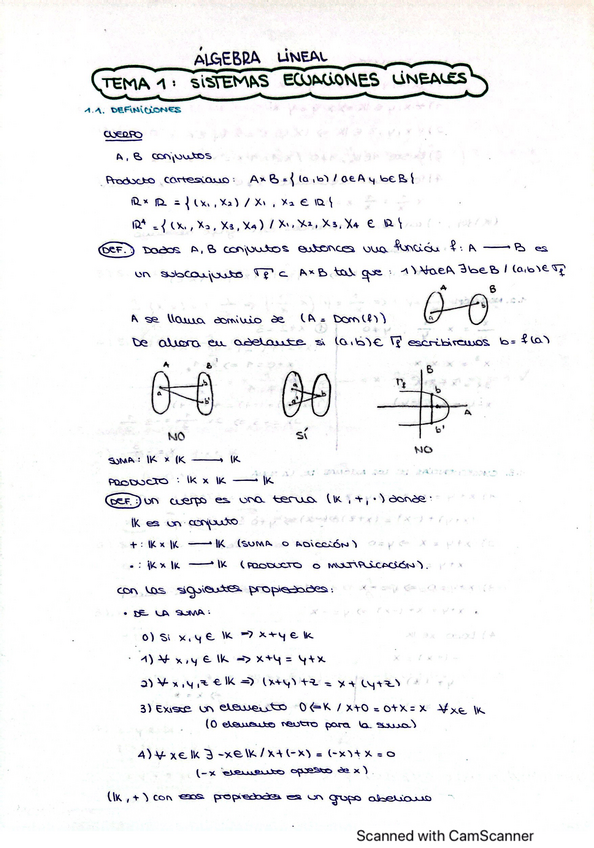 ÁLGEBRA LINEAL
TEMA 1: SISTEMAS ECUACIONES LINEALES
1.1. DEFINICIONES
CUERPO
A, B conjuntos
Producto cartesiano: A×B = {(a,b) / a∈A y b∈B}
ℝ×ℝ = {(x₁, x₂) / x₁, x₂ ∈ ℝ}
ℝ⁴ = {(x₁, x₂, x₃, x₄) / x₁, x₂, x₃, x₄ ∈ ℝ}
DEF. Dados A, B conjuntos entonces una función f: A ⟶ B es
un subconjunto Γf ⊂ A×B tal que: 1) ∀a∈A ∃b∈B / (a,b)∈Γf
A B
a b
A se llama dominio de (A = Dom(f))
De ahora en adelante si (a,b)∈ Γf escribiremos b = f(a)
A B
a b
b'
NO
a b
a'
SÍ
B
Γf b
A
b'
NO
SUMA: 𝕂 × 𝕂 ⟶ 𝕂
PRODUCTO: 𝕂 × 𝕂 ⟶ 𝕂
DEF.: un cuerpo es una terna (𝕂, +, ·) donde:
𝕂 es un conjunto
+: 𝕂 × 𝕂 ⟶ 𝕂 (SUMA O ADICCIÓN)
·: 𝕂 × 𝕂 ⟶ 𝕂 (PRODUCTO O MULTIPLICACIÓN).
con las siguientes propiedades:
• DE LA SUMA:
0) Si x,y ∈ 𝕂 ⇒ x+y ∈ 𝕂
1) ∀ x,y ∈ 𝕂 ⇒ x+y = y+x
2) ∀ x,y,z ∈ 𝕂 ⇒ (x+y)+z = x+(y+z)
3) Existe un elemento 0∈K / x+0=0+x=x ∀x∈ 𝕂
(0 elemento neutro para la suma)
4) ∀ x∈ 𝕂 ∃ -x∈𝕂 / x+(-x) = (-x)+x = 0
(-x elemento opuesto de x)
(𝕂, +) con esas propiedades es un grupo abeliano
Scanned with CamScanner